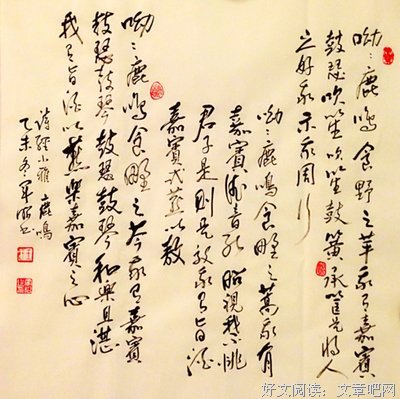 呦〻鹿鸣食野之苹我有嘉賓
鼓瑟吹笙吹笙鼓簧承筐是将人
之好我示我周行
呦〻鹿鸣食野之蒿我有
嘉賓德音孔昭視民不恌
君子是则是效我有旨酒
嘉賓式燕以敖
呦〻鹿鸣食野之芩我有嘉賓
鼓瑟鼓琴鼓瑟鼓琴和樂且湛
我有旨酒以燕樂嘉賓之心
诗经小雅鹿鳴
乙未冬军书
好文阅读：文章吧网